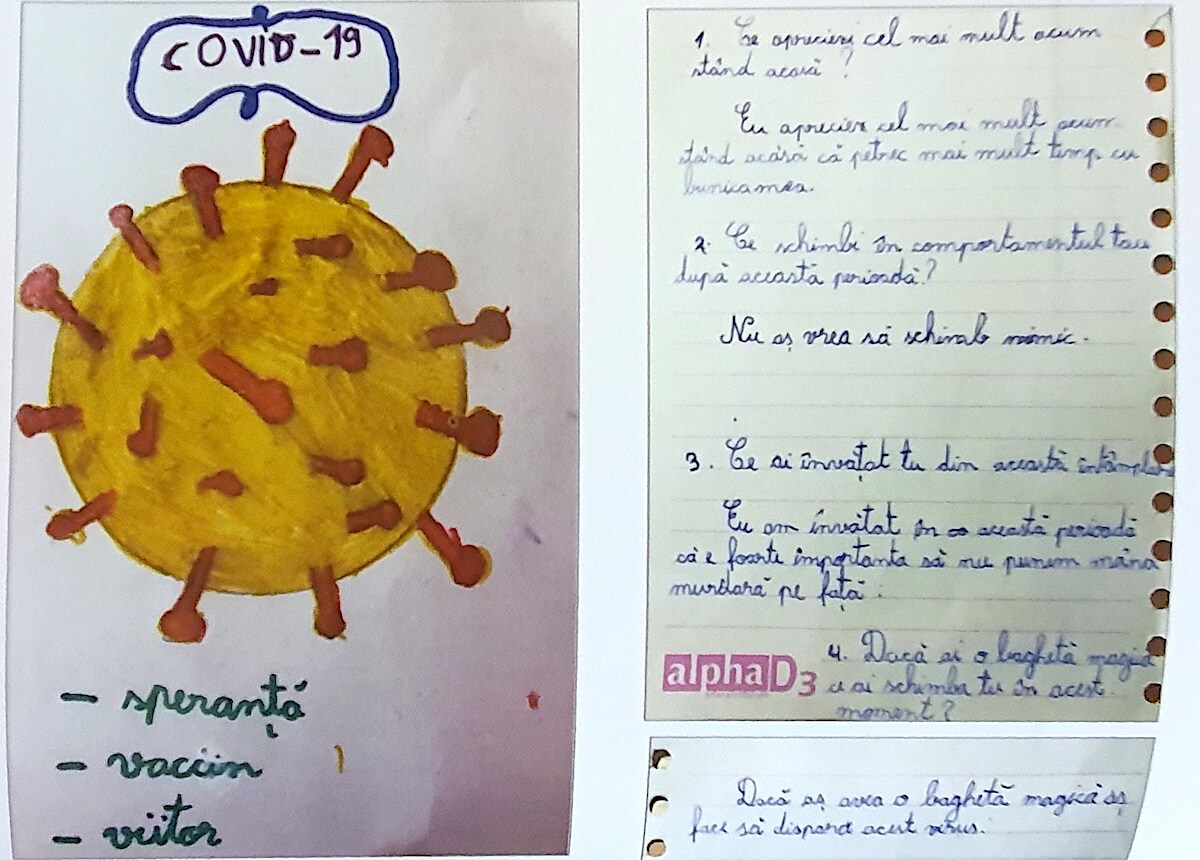 COVID-19
- speranță
- vacciin
- viitor
1. Ce apreciezi cel mai mult acum
stând acasă ?
Eu apreciez cel mai mult acum
stând acasă că petrec mai mult timp cu
bunica mea.
2. Ce schimbi în comportamentul tau
după această perioadă?
Nu aș vrea să schimb nimic.
3. Ce ai învațat tu din această întâmplare
Eu am învătat în această perioadă
că e foarte importanta să nu punem mâna
murdară pe față.
alphaD3
4. Dacă ai o baghetă magică
ce ai schimba tu în acest
moment ?
Dacă aș avea o baghetă magică aș
face să dispară acest virus.